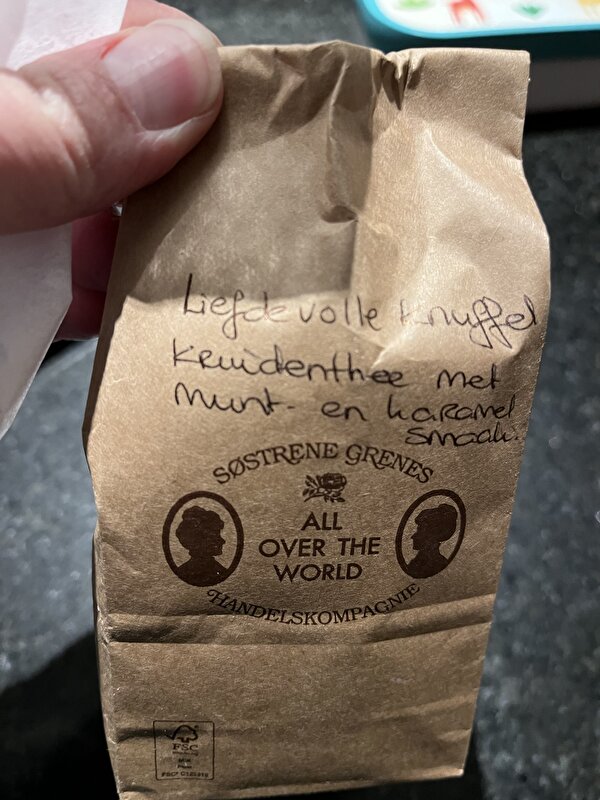 Liefdevolle Knuffel
Kruidenthee met
Munt- en karamel
smaak.
SØSTRENE GRENES
ALL
OVER THE
WORLD
HANDELSKOMPAGNIE
FSC